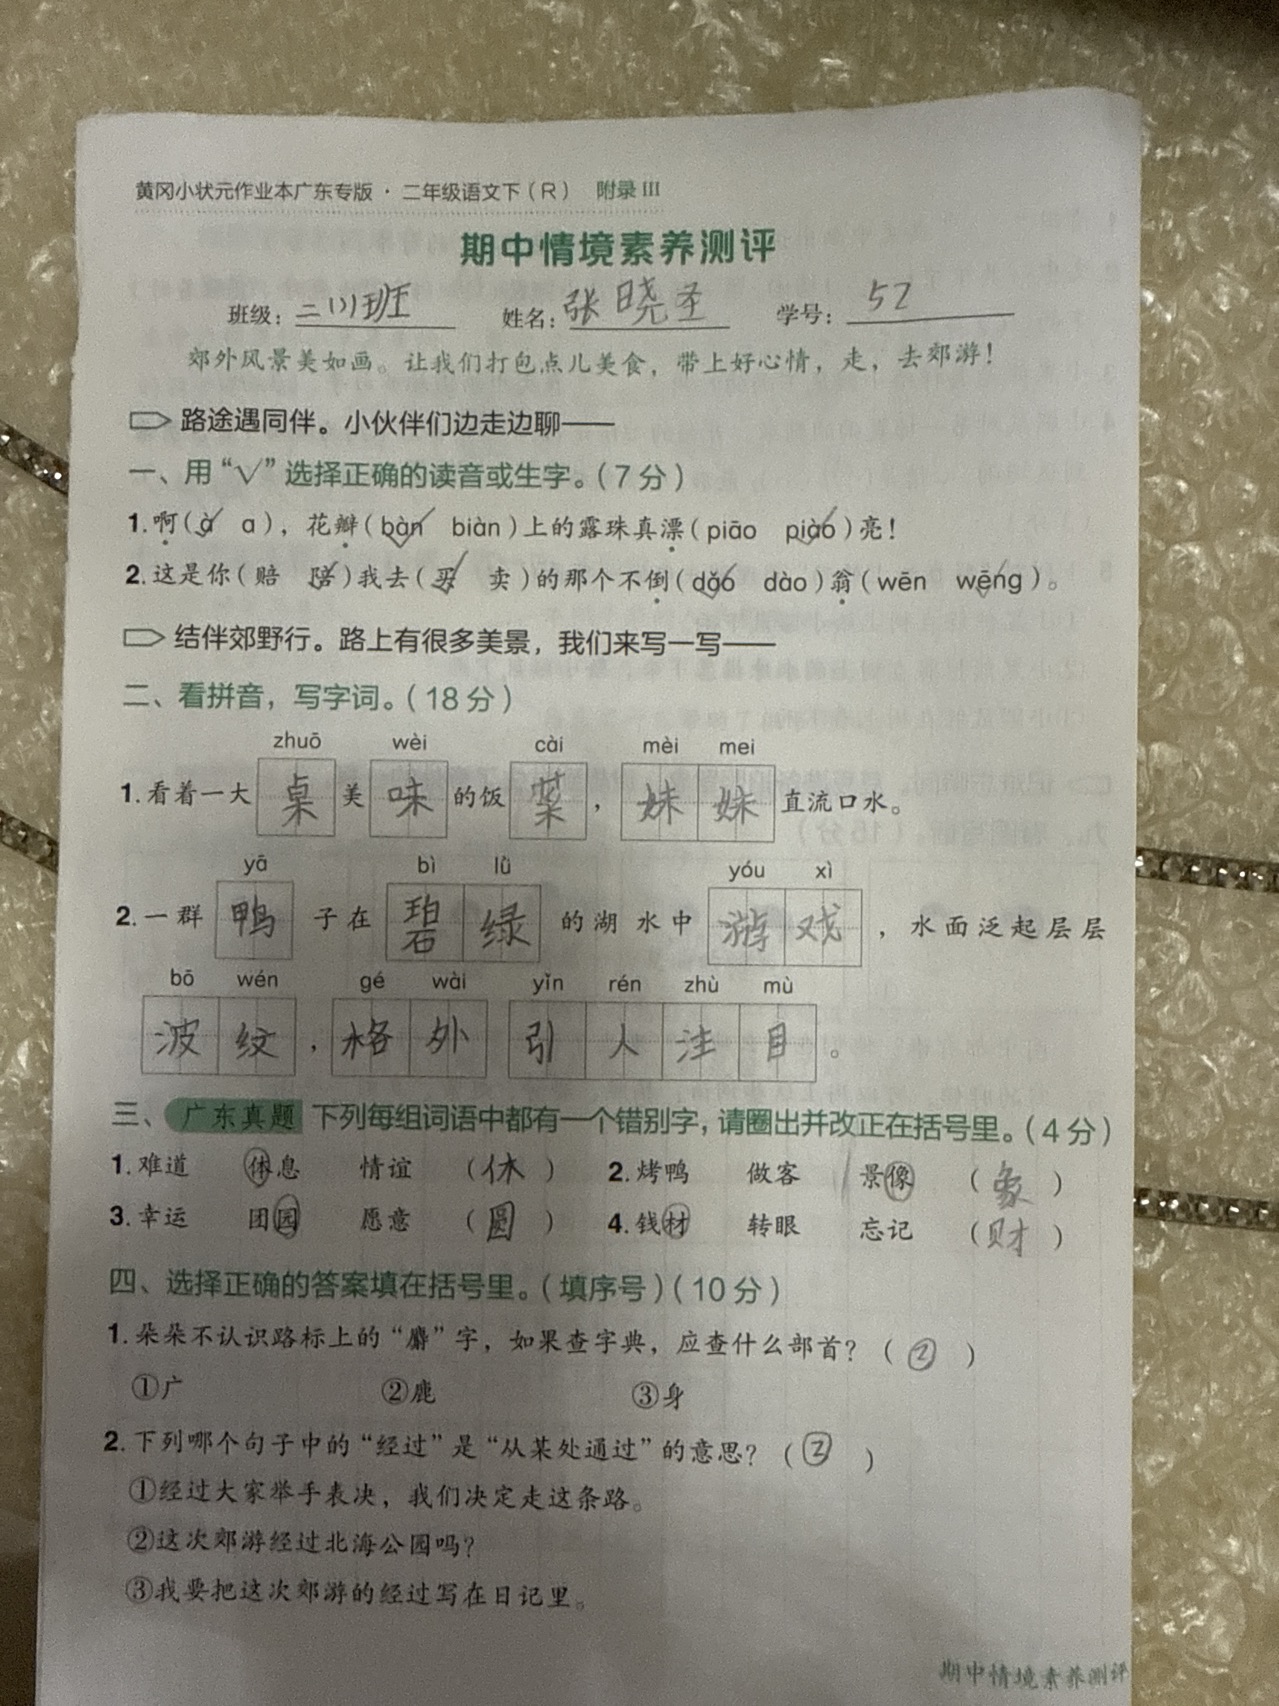 黄冈小状元作业本广东专版 · 二年级语文下(R) 附录 III
期中情境素养测评
班级：二(1)班 姓名：张晓圣 学号：52
郊外风景美如画。让我们打包点儿美食，带上好心情，走，去郊游！
路途遇同伴。小伙伴们边走边聊——
一、用“√”选择正确的读音或生字。(7分)
1.啊(à✓ a)，花瓣(bàn✓ biàn)上的露珠真漂(piāo piào✓)亮！
2.这是你(赔 陪✓)我去(买✓ 卖)的那个不倒(dǎo✓ dào)翁(wēn wēng✓)。
结伴郊野行。路上有很多美景，我们来写一写——
二、看拼音，写字词。(18分)
zhuō wèi cài mèi mei
1.看着一大桌美味的饭菜，妹妹直流口水。
yā bì lǜ yóu xì
2.一群鸭子在碧绿的湖水中游戏，水面泛起层层
bō wén gé wài yǐn rén zhù mù
波纹，格外引人注目。
三、广东真题 下列每组词语中都有一个错别字，请圈出并改正在括号里。(4分)
1.难道 体息 情谊 (休) 2.烤鸭 做客 景像 (象)
3.幸运 团园 愿意 (圆) 4.钱材 转眼 忘记 (财)
四、选择正确的答案填在括号里。(填序号)(10分)
1.朵朵不认识路标上的“麝”字，如果查字典，应查什么部首？(②)
①广 ②鹿 ③身
2.下列哪个句子中的“经过”是“从某处通过”的意思？(②)
①经过大家举手表决，我们决定走这条路。
②这次郊游经过北海公园吗？
③我要把这次郊游的经过写在日记里。
期中情境素养测评